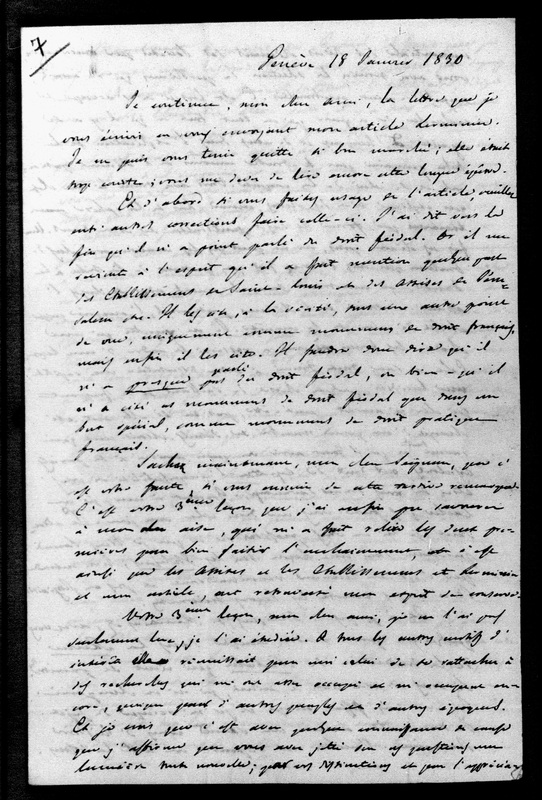 7
Genève 18 Janvier 1830
Je continue, mon cher ami, la lettre que je
vous écrivis en vous envoyant mon article Lerminier.
Je ne puis vous tenir quitte à si bon marché; elle était
trop courte; vous me devez de lire encore cette longue épître.
Et d'abord si vous faites usage de l'article, veuillez
entr' autres corrections faire celle-ci. J'ai dit vers la
fin qu'il n'a point parlé du droit féodal. Or il me
revient à l'esprit qu'il a fait mention quelque part
des Etablissemens de Saint-Louis et des Assises de Jéru-
salem &c. Il les cite, à la vérité, sous un autre point
de vue, uniquement comme monumens de droit français,
mais enfin il les cite. Il faudra donc dire qu'il
n'a presque pas parlé du droit féodal, ou bien qu'il
n'a cité ces monumens de droit féodal que dans un
but spécial, comme monumens de droit pratique
français.
Sachez maintenant, mon cher Seigneur, que c'
est votre faute si vous ennuie de cette tardive remarque.
C'est votre 3ème leçon, que j'ai enfin pu savourer
à mon aise, qui m'a fait relire les deux pre-
mières pour bien saisir l'enchaînement, et c'est
ainsi que les Assises et les Etablissemens et Lerminier
et mon article, me retraient mon esprit de
Votre 3ème leçon, mon cher ami, je ne l'ai pas
seulement lue, je l'ai étudiée. A tous les autres motifs d'
intérêt elle réunissait pour moi celui de se rattacher à
des recherches qui m'ont assez occupé et m'occupent en-
core, quoique pour d'autres peuples et d'autres époques.
Et je crois que c'est avec quelque connaissance de cause
que j'affirme que vous avez jeté sur ces questions une
lumière toute nouvelle; par vos distinctions et par l'appréciation